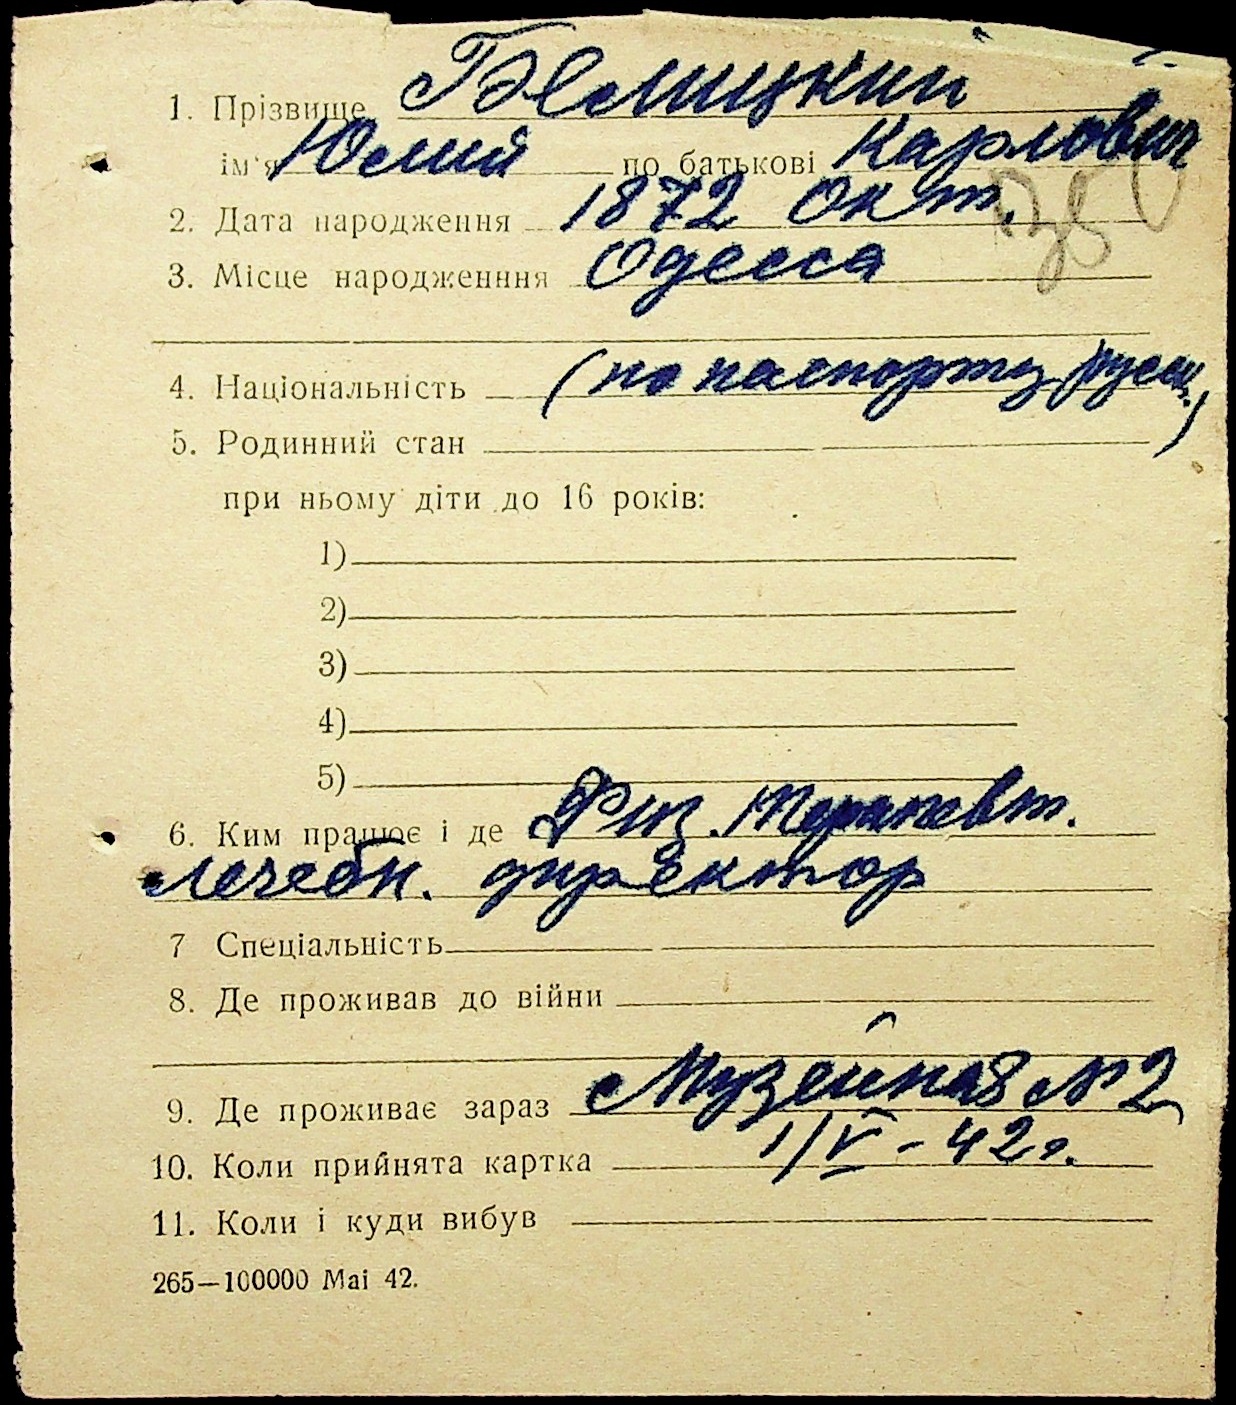 1. Прізвище Белицкий
ім'я Юлий по батькові Карлович
2. Дата народження 1872 Окт.
3. Місце народженння Одесса
4. Національність (по паспорту русск.)
5. Родинний стан
при ньому діти до 16 років:
1)
2)
3)
4)
5)
6. Ким працює і де Физ. Терапевт.
лечебн. директор
7 Спеціальність
8. Де проживав до війни
9. Де проживає зараз Музейная № 2
10. Коли прийнята картка 1/V - 42 г.
11. Коли і куди вибув
265—100000 Mai 42.